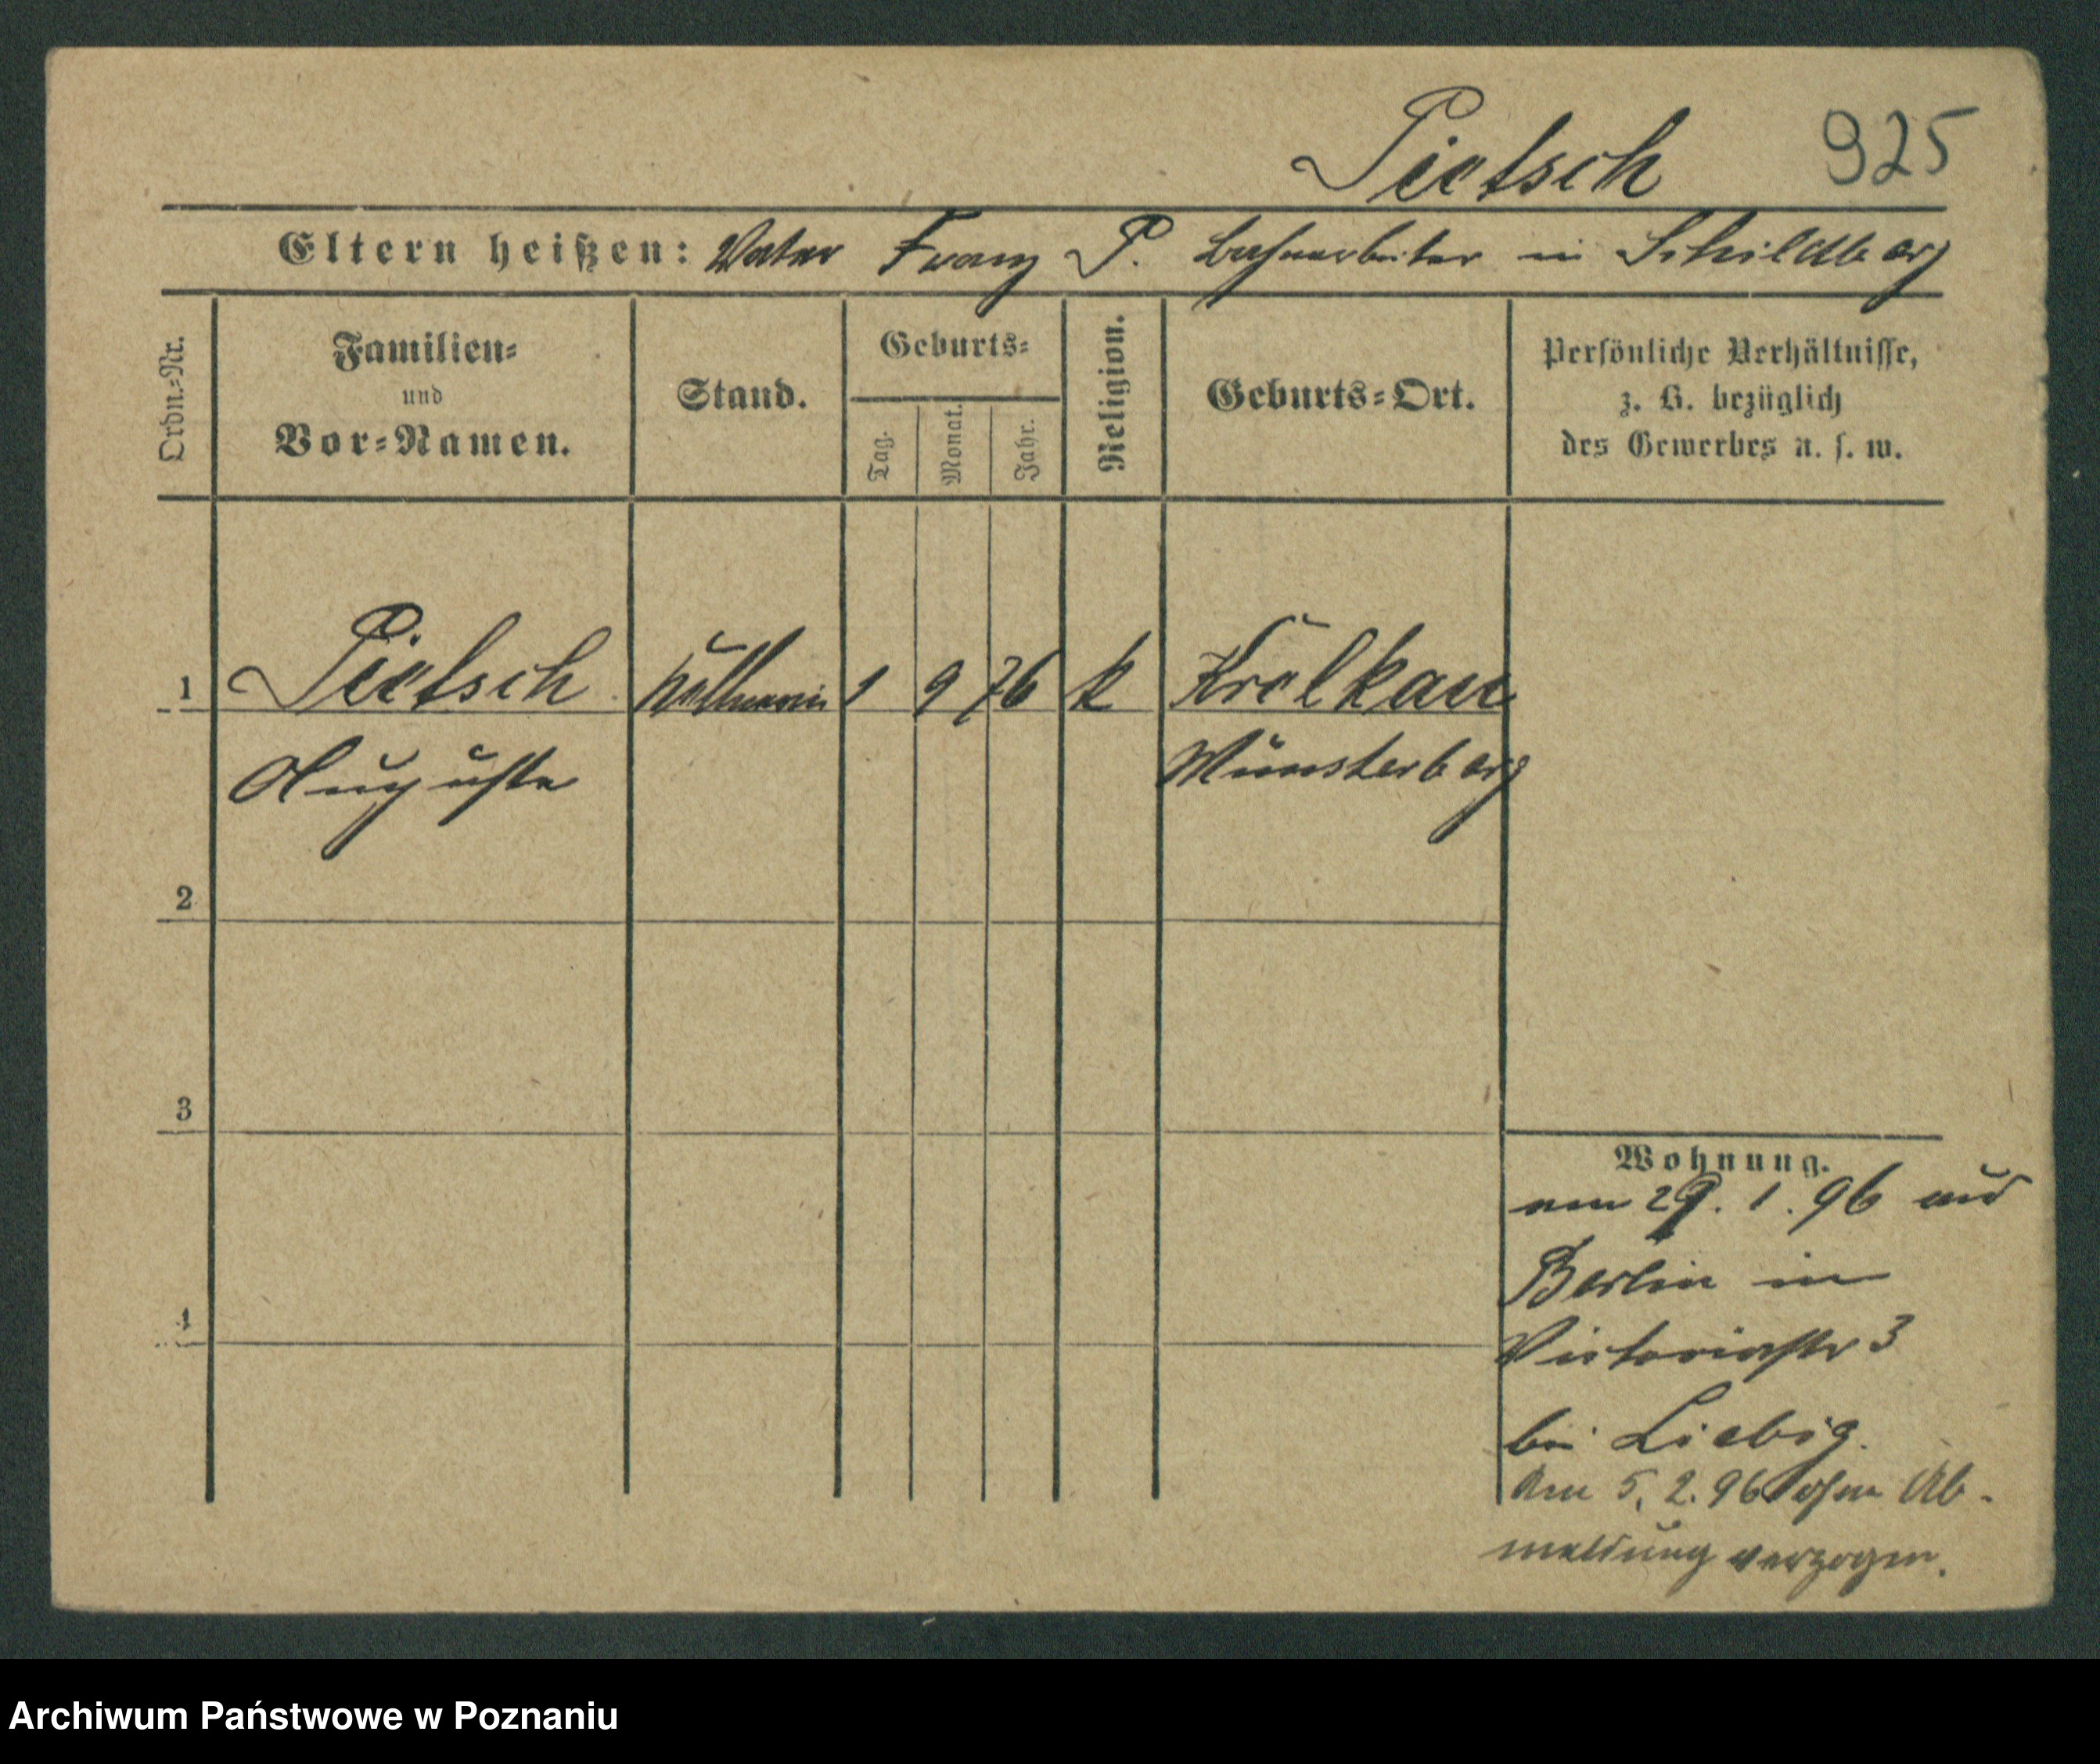 Pietsch 925
Eltern heißen: Vater Franz P. Bahnarbeiter in Schildberg
Ordn.=Nr.
Familien=
und
Vor=Namen.
Stand.
Geburts=
Tag.
Monat.
Jahr.
Religion.
Geburts=Ort.
Persönliche Verhältnisse,
z. B. bezüglich
des Gewerbes u. s. w.
1 Pietsch 1 9 76 k Krelkau
Auguste Münsterberg
2
3
4
Wohnung.
am 29. 1. 96 aus
Berlin in
Victoriastr 3
bei Liebig.
Am 5. 2. 96 ohne Ab-
meldung verzogen.
Archiwum Państwowe w Poznaniu